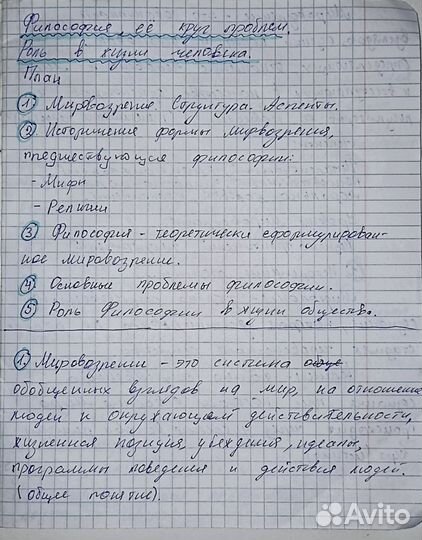 Философия, её круг проблем.
Роль в жизни человека.
План
① Мировозрение Структура. Аспекты.
② Исторические формы мировозрения,
предшествующие философии:
- Мифы
- Религии
③ Философия - теоретически сформулирован-
ное мировозрение.
④ Основные проблемы философии.
⑤ Роль Философии в жизни общества.
① Мировозрении - это система
обобщенных взглядов на мир, на отношение
людей к окружающей действительности,
жизненная позиция, убеждения, идеалы,
программы поведения и действия людей.
(общее понятие).
Avito